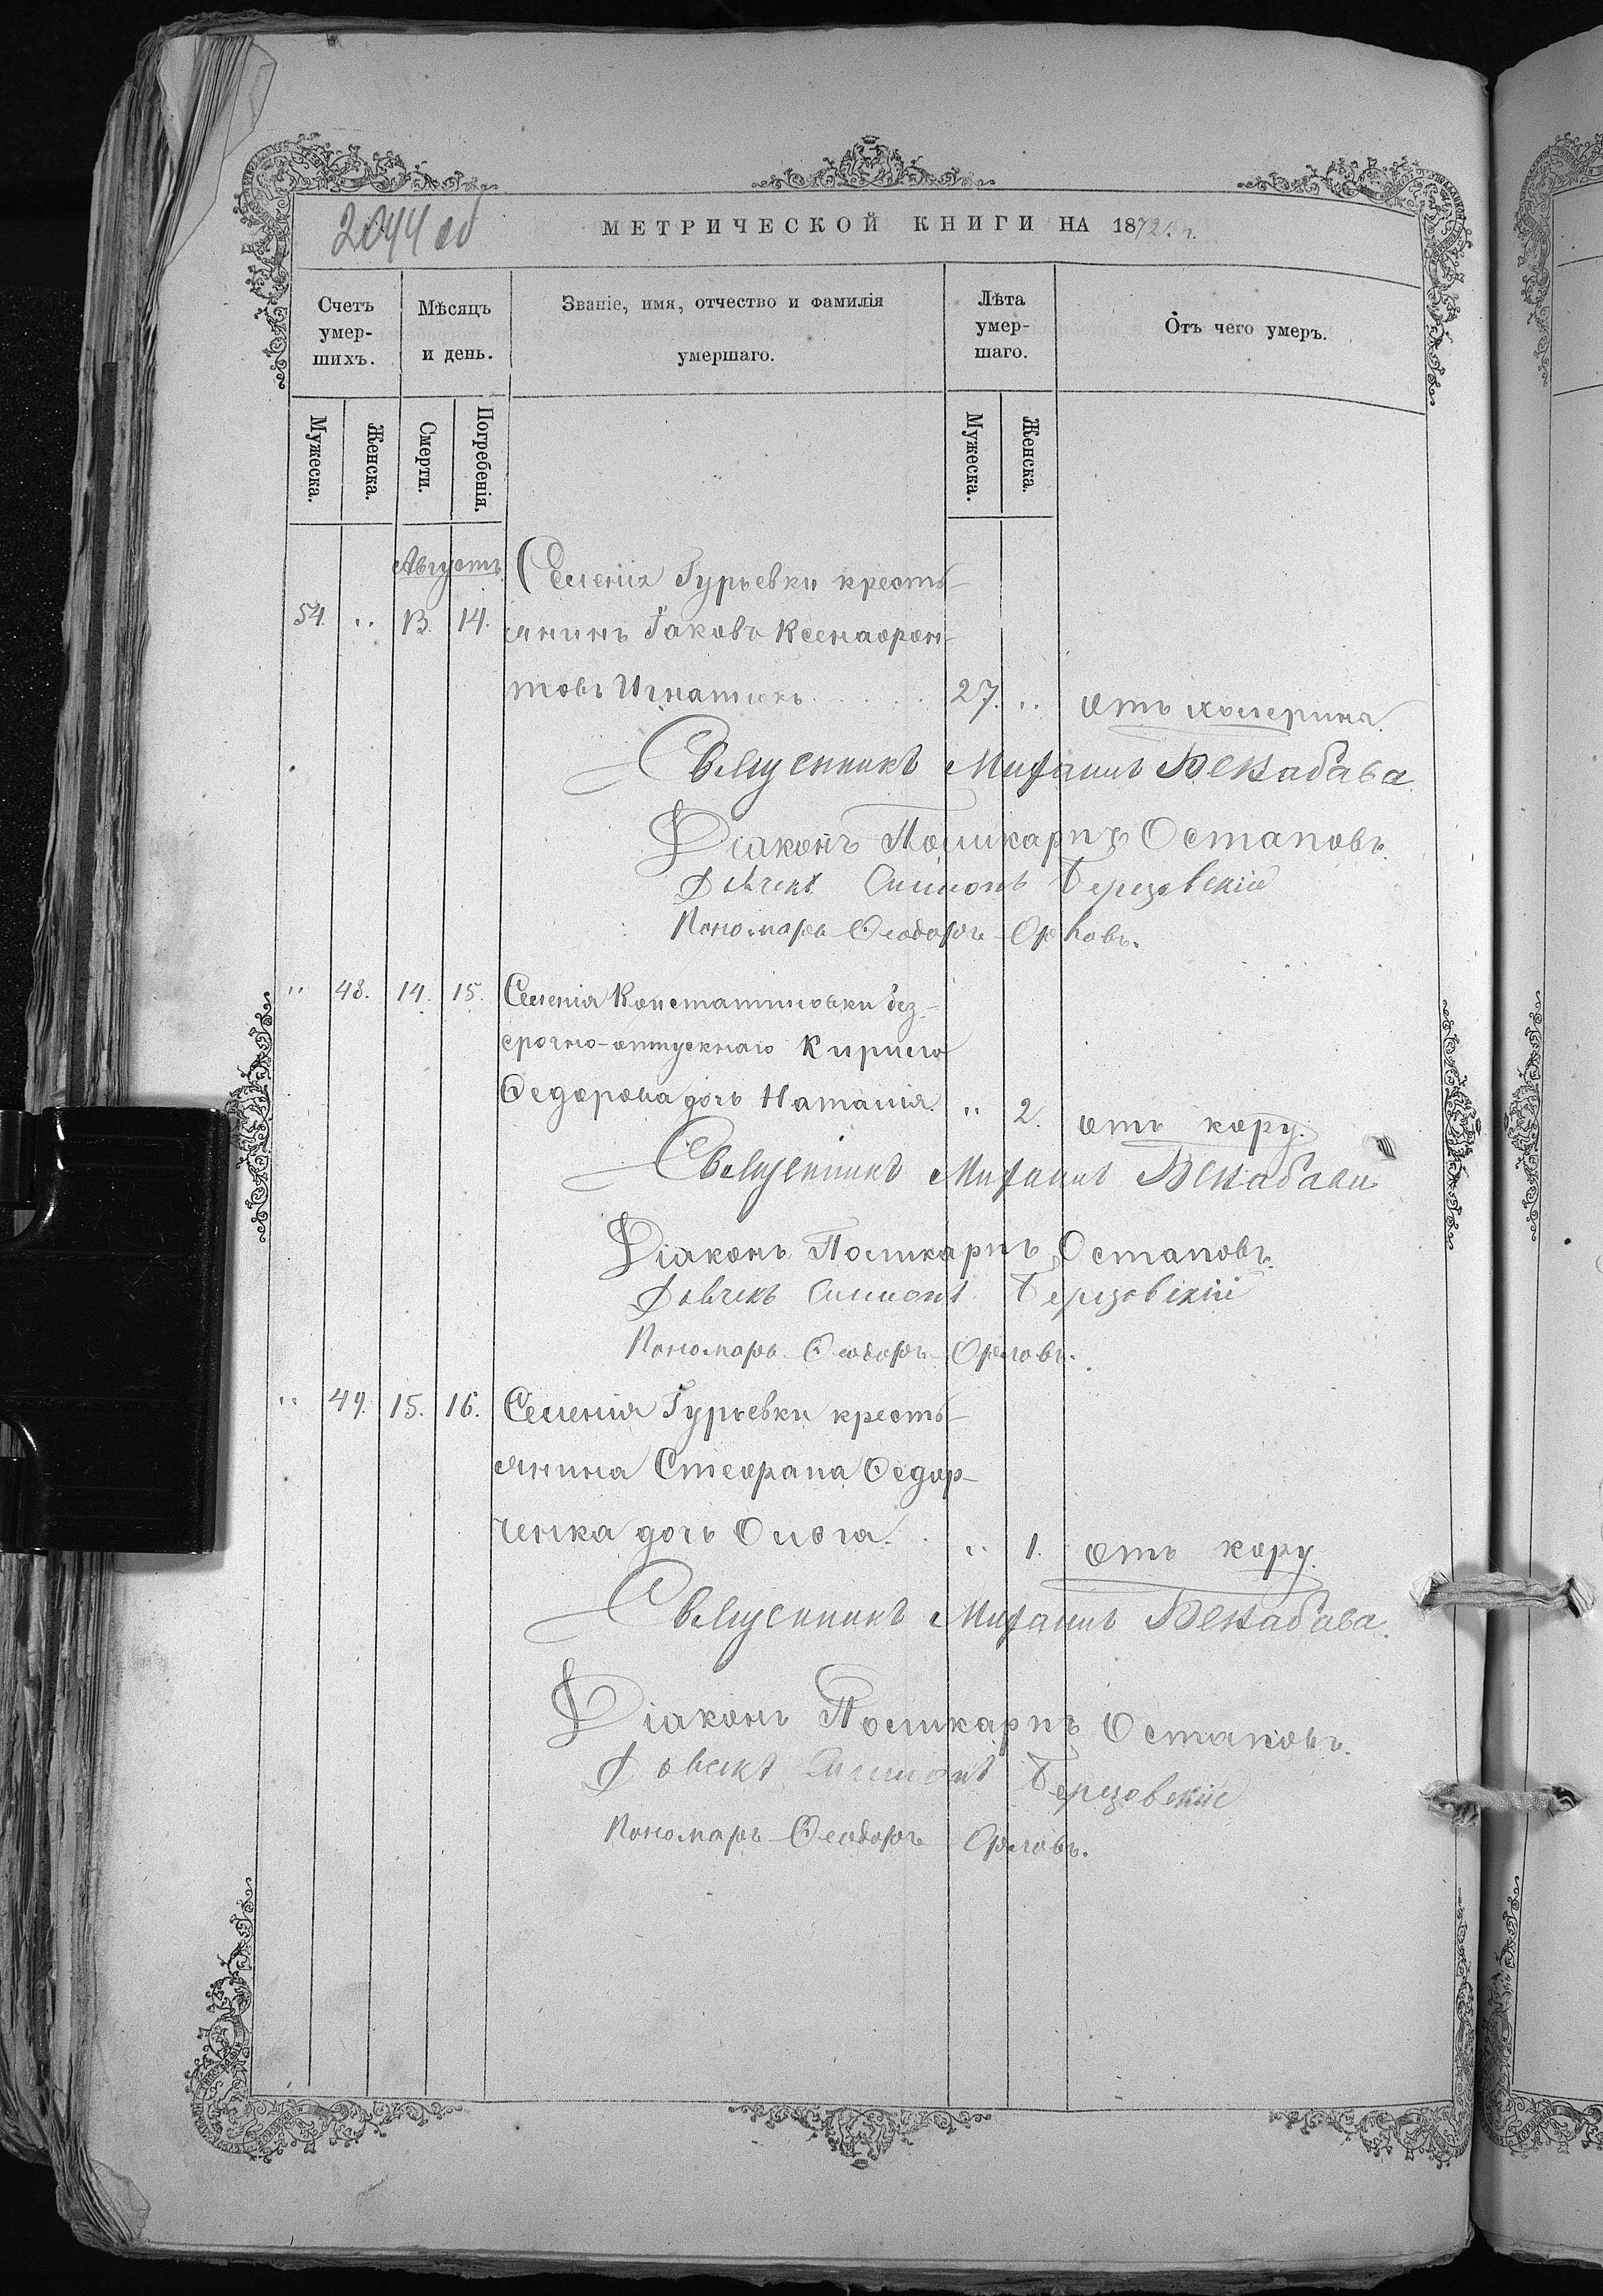 2044 об
МЕТРИЧЕСКОЙ КНИГИ НА 1872 г.
Счетъ умер- шихъ.
Мѣсяцъ и день.
Званіе, имя, отчество и фамилія умершаго.
Лѣта умер- шаго.
Отъ чего умеръ.
Мужеска.
Женска.
Смерти.
Погребенія.
Мужеска.
Женска.
Августъ
Селенія Гурьевки кресть-
54. „ 13. 14. янинъ Іаковъ Ксенофон-
товъ Игнатюкъ 27. „ отъ холерина
Священникъ Михаилъ
Діаконъ Поликарпъ Остаповъ.
Дьячекъ Симеонъ Березовскій
Пономарь Ѳеодоръ Орловъ.
„ 48. 14. 15. Селенія Константиновки без-
срочно-отпускнаго Кирила
Ѳедорова дочь Наталія. „ 2. отъ кору.
Священникъ Михаилъ
Діаконъ Поликарпъ Остаповъ.
Дьячекъ Симеонъ Березовскій
Пономарь Ѳеодоръ Орловъ.
„ 49. 15. 16. Селенія Гурьевки кресть-
янина Стефана Ѳедор-
ченка дочь Ольга. „ 1. отъ кору.
Священникъ Михаилъ
Діаконъ Поликарпъ Остаповъ.
Дьячекъ Симеонъ Березовскій
Пономарь Ѳеодоръ Орловъ.